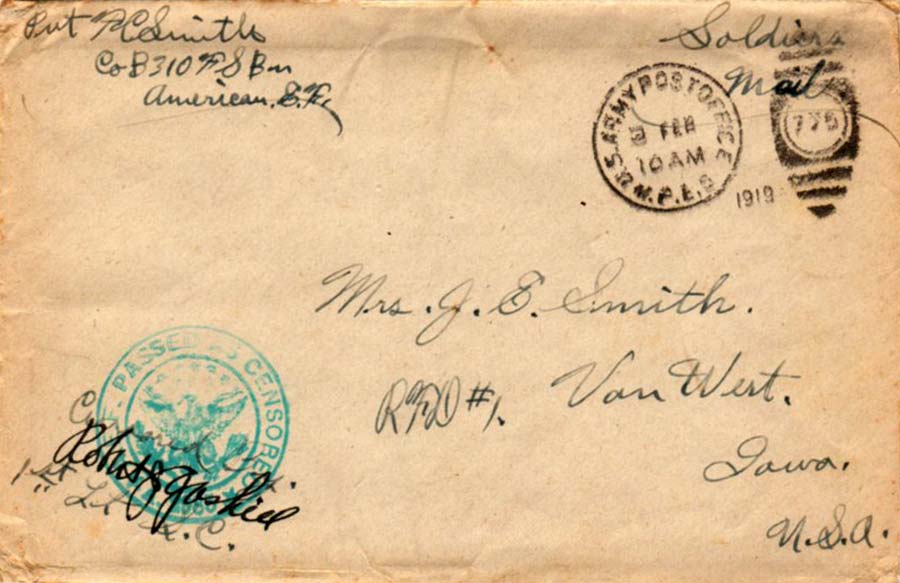 Pvt F C Smith
Co B 310 F S Bn
American. E. F.
Soldiers
Mail
U.S. ARMY POST OFFICE
FEB
10 AM
M.P.E.S
1919
775
Mrs. J. E. Smith.
RFD #1. Van West.
Iowa.
U.S.A.
PASSED AS CENSORED
1st Lt. S.C.